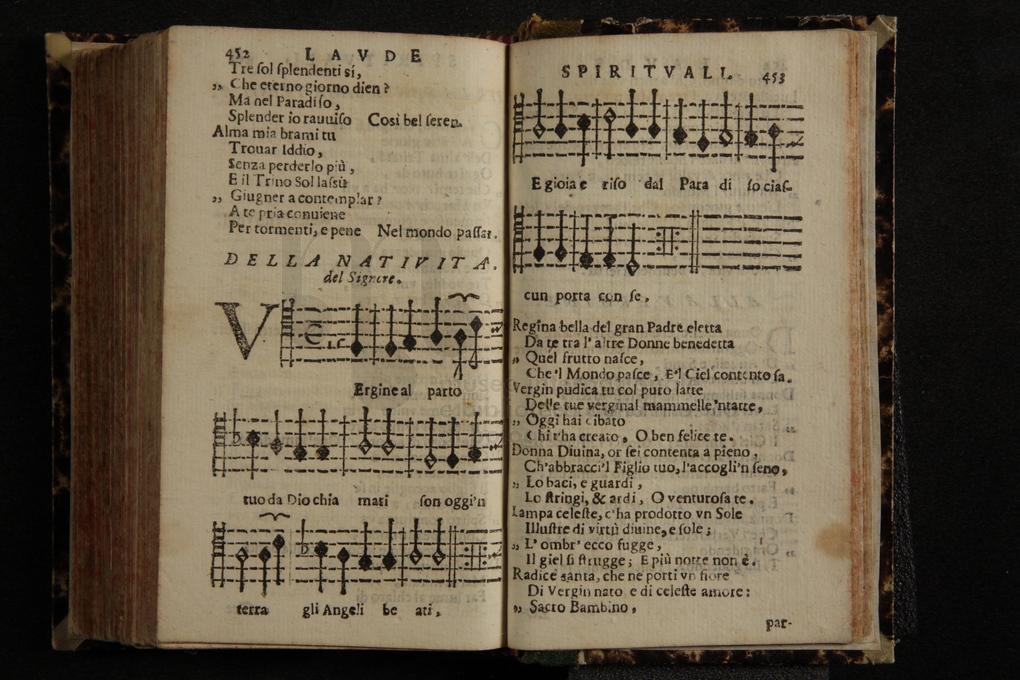 452 LAVDE
Tre sol splendenti sí,
„ Che eterno giorno dien?
Ma nel Paradiso,
Splender io rauuiso Cosi bel seren.
Alma mia brami tu
Trouar Iddio,
Senza perderlo più,
E il Trino Sol lassù
„ Giugner a contemplar?
A te pria conuiene
Per tormenti, e pene Nel mondo passar.
DELLA NATIVITA.
del Signore.
V
Ergine al parto
tuo da Dio chia mati son oggi'n
terra gli Angeli be ati,
SPIRITVALI. 453
E gioia e riso dal Para di so cias-
cun porta con se.
Regina bella del gran Padre eletta
Da te tra l'altre Donne benedetta
„ Quel frutto nasce,
Che'l Mondo pasce, E'l Ciel contento fa.
Vergin pudica tu col puro latte
Delle tue verginal mammelle 'ntatte,
„ Oggi hai cibato
Chi t'ha creato, O ben felice te.
Donna Diuina, or sei contenta a pieno,
Ch'abbracci'l Figlio tuo, l'accogli'n seno,
„ Lo baci, e guardi,
Lo stringi, & ardi, O venturosa te.
Lampa celeste, c'ha prodotto vn Sole
Illustre di virtù diuine, e sole;
„ L'ombr' ecco fugge,
Il giel si strugge; E più notte non è.
Radice santa, che ne porti vn fiore
Di Vergin nato e di celeste amore:
„ Sacro Bambino,
par-